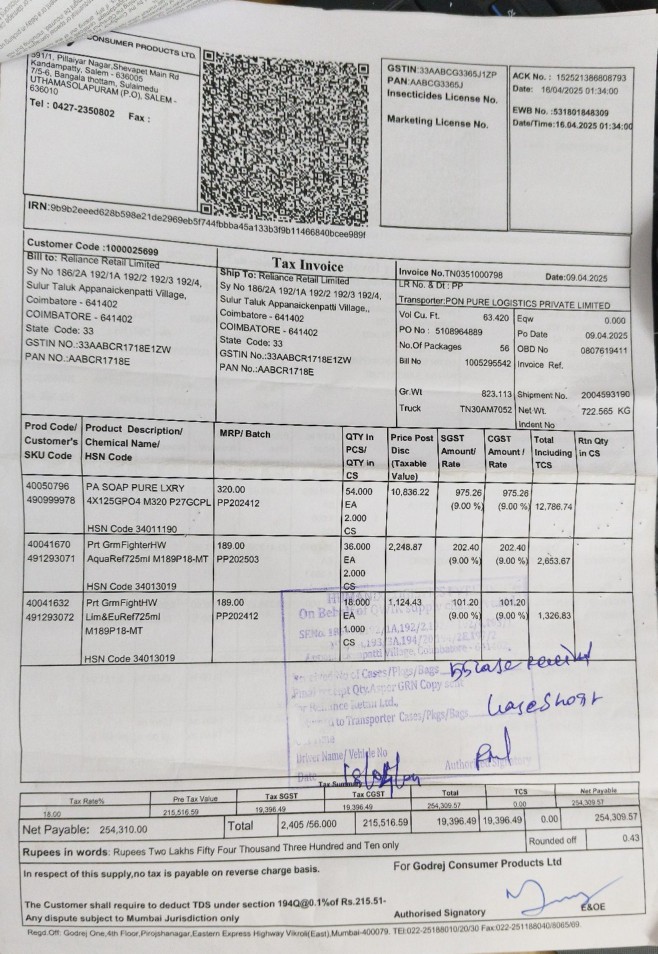 CONSUMER PRODUCTS LTD.
391/1, Pillaiyar Nagar,Shevapet Main Rd
Kandampatty, Salem - 636005
7/5-6, Bangala thottam, Sulaimedu
UTHAMASOLAPURAM (P.O), SALEM -
636010
Tel : 0427-2350802 Fax :
GSTIN:33AABCG3365J1ZP
PAN:AABCG3365J
Insecticides License No.
Marketing License No.
ACK No. : 152521386808793
Date: 16/04/2025 01:34:00
EWB No. :531801848309
Date/Time:16.04.2025 01:34:00
IRN:9b9b2eeed628b598e21de2969eb5f744fbbba45a133b3f9b11466840bcee989f
Customer Code :1000025699
Tax Invoice
Bill to: Reliance Retail Limited
Sy No 186/2A 192/1A 192/2 192/3 192/4,
Sulur Taluk Appanaickenpatti Village,
Coimbatore - 641402
COIMBATORE - 641402
State Code: 33
GSTIN NO.:33AABCR1718E1ZW
PAN NO.:AABCR1718E
Ship To: Reliance Retail Limited
Sy No 186/2A 192/1A 192/2 192/3 192/4,
Sulur Taluk Appanaickenpatti Village,,
Coimbatore - 641402
COIMBATORE - 641402
State Code: 33
GSTIN NO.:33AABCR1718E1ZW
PAN NO.:AABCR1718E
Invoice No.TN0351000798 Date:09.04.2025
LR No. & Dt : PP
Transporter:PON PURE LOGISTICS PRIVATE LIMITED
Vol Cu. Ft. 63.420 Eqw 0.000
PO No : 5108964889 Po Date 09.04.2025
No.Of Packages 56 OBD No 0807619411
Bill No 1005295542 Invoice Ref.
Gr.Wt 823.113 Shipment No. 2004593190
Truck TN30AM7052 Net Wt. 722.565 KG
Indent No
Prod Code/ Customer's SKU Code
Product Description/ Chemical Name/ HSN Code
MRP/ Batch
QTY In PCS/ QTY in CS
Price Post Disc (Taxable Value)
SGST Amount/ Rate
CGST Amount / Rate
Total Including TCS
Rtn Qty in CS
40050796 PA SOAP PURE LXRY 320.00 54.000 10,836.22 975.26 975.26
490999978 4X125GPO4 M320 P27GCPL PP202412 EA (9.00 %) (9.00 %) 12,786.74
2.000
HSN Code 34011190 CS
40041670 Prt GrmFighterHW 189.00 36.000 2,248.87 202.40 202.40
491293071 AquaRef725ml M189P18-MT PP202503 EA (9.00 %) (9.00 %) 2,653.67
2.000
HSN Code 34013019 CS
40041632 Prt GrmFightHW 189.00 18.000 1,124.43 101.20 101.20
491293072 Lim&EuRef725ml PP202412 EA (9.00 %) (9.00 %) 1,326.83
M189P18-MT 1.000
CS
HSN Code 34013019
No of Cases/Pkgs/Bags 55 case received
Qty.As per GRN Copy
Reliance Retail Ltd., 1 case short
to Transporter Cases/Pkgs/Bags
Driver Name/ Vehicle No Authorised Signatory
Date
Tax Summary
Tax Rate% Pre Tax Value Tax SGST Tax CGST Total TCS Net Payable
18.00 215,516.59 19,396.49 19,396.49 254,309.57 0.00 254,309.57
Net Payable: 254,310.00 Total 2,405 /56.000 215,516.59 19,396.49 19,396.49 0.00 254,309.57
Rounded off 0.43
Rupees in words: Rupees Two Lakhs Fifty Four Thousand Three Hundred and Ten only
In respect of this supply,no tax is payable on reverse charge basis.
For Godrej Consumer Products Ltd
The Customer shall require to deduct TDS under section 194Q@0.1%of Rs.215.51-
Any dispute subject to Mumbai Jurisdiction only
Authorised Signatory E&OE
Regd.Off: Godrej One,4th Floor,Pirojshanagar,Eastern Express Highway Vikroli(East),Mumbai-400079. TEl:022-25188010/20/30 Fax:022-251188040/8065/69.